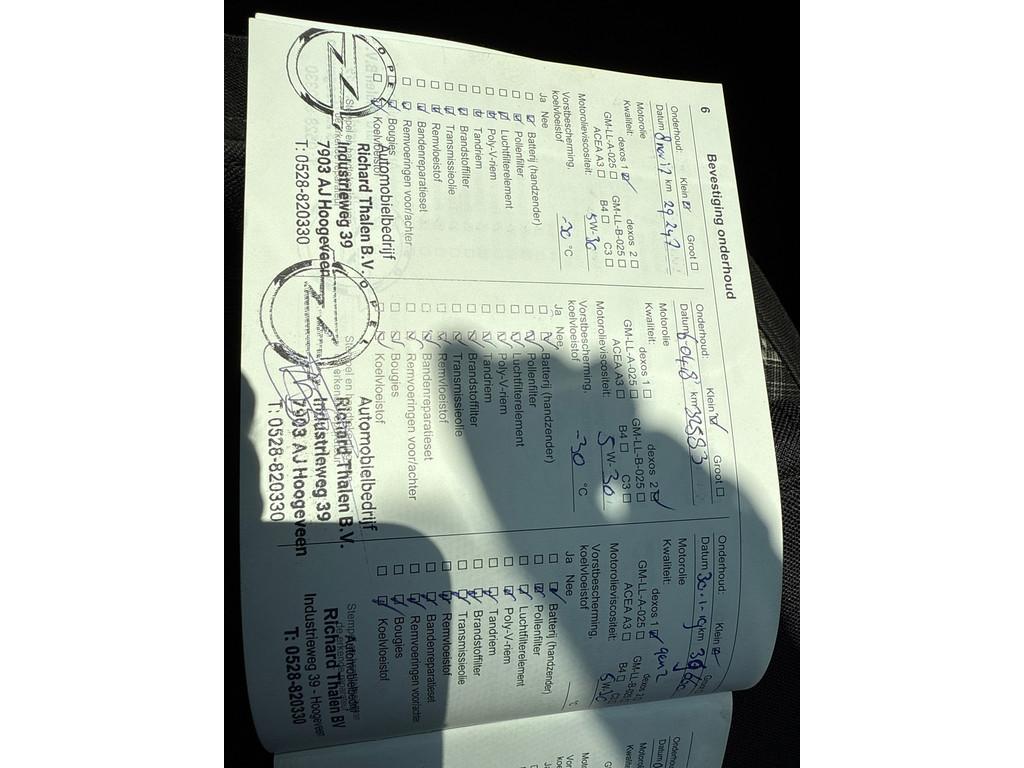 6
Bevestiging onderhoud
Onderhoud: Klein ☑ Groot ☐
Datum nov 17 km 29.247
Motorolie
Kwaliteit: dexos 1 ☑ dexos 2 ☐
GM-LL-A-025 ☐ GM-LL-B-025 ☐
ACEA A3 ☐ B4 ☐ C3 ☐
Motorolieviscositeit: 5W-30
Vorstbescherming,
koelvloeistof -30 °C
Ja Nee
☐ ☑ Batterij (handzender)
☐ ☑ Pollenfilter
☐ ☑ Luchtfilterelement
☐ ☑ Poly-V-riem
☐ ☑ Tandriem
☐ ☑ Brandstoffilter
☐ ☑ Transmissieolie
☐ ☑ Remvloeistof
☐ ☑ Bandenreparatieset
☐ ☑ Remvoeringen voor/achter
☐ ☑ Bougies
☐ ☑ Koelvloeistof
OPEL
Automobielbedrijf
Richard Thalen B.V.
Industrieweg 39
7903 AJ Hoogeveen
T: 0528-820330
Onderhoud: Klein ☑ Groot ☐
Datum km
Motorolie
Kwaliteit: dexos 1 ☐ dexos 2 ☑
GM-LL-A-025 ☐ GM-LL-B-025 ☐
ACEA A3 ☐ B4 ☐ C3 ☐
Motorolieviscositeit: 5W-30
Vorstbescherming,
koelvloeistof -30 °C
Ja Nee
☐ ☑ Batterij (handzender)
☐ ☑ Pollenfilter
☐ ☑ Luchtfilterelement
☐ ☑ Poly-V-riem
☐ ☑ Tandriem
☐ ☑ Brandstoffilter
☐ ☑ Transmissieolie
☐ ☑ Remvloeistof
☐ ☑ Bandenreparatieset
☐ ☑ Remvoeringen voor/achter
☐ ☑ Bougies
☐ ☑ Koelvloeistof
OPEL
Automobielbedrijf
Richard Thalen B.V.
Industrieweg 39
7903 AJ Hoogeveen
T: 0528-820330
Onderhoud: Klein ☑
Datum 30-1-19 km
Motorolie
Kwaliteit: dexos 1 ☑ gen 2
GM-LL-A-025 ☐
ACEA A3 ☐ B4 ☐
Motorolieviscositeit: 5W-30
Vorstbescherming,
koelvloeistof °C
Ja Nee
☐ ☑ Batterij (handzender)
☐ ☑ Pollenfilter
☐ ☑ Luchtfilterelement
☐ ☑ Poly-V-riem
☐ ☑ Tandriem
☐ ☑ Brandstoffilter
☐ ☑ Transmissieolie
☐ ☑ Remvloeistof
☐ ☑ Bandenreparatieset
☐ ☑ Remvoeringen voor/achter
☐ ☑ Bougies
☐ ☑ Koelvloeistof
Automobielbedrijf
Richard Thalen BV
Industrieweg 39 - Hoogeveen
T: 0528-820330
Onderhoud
Datum